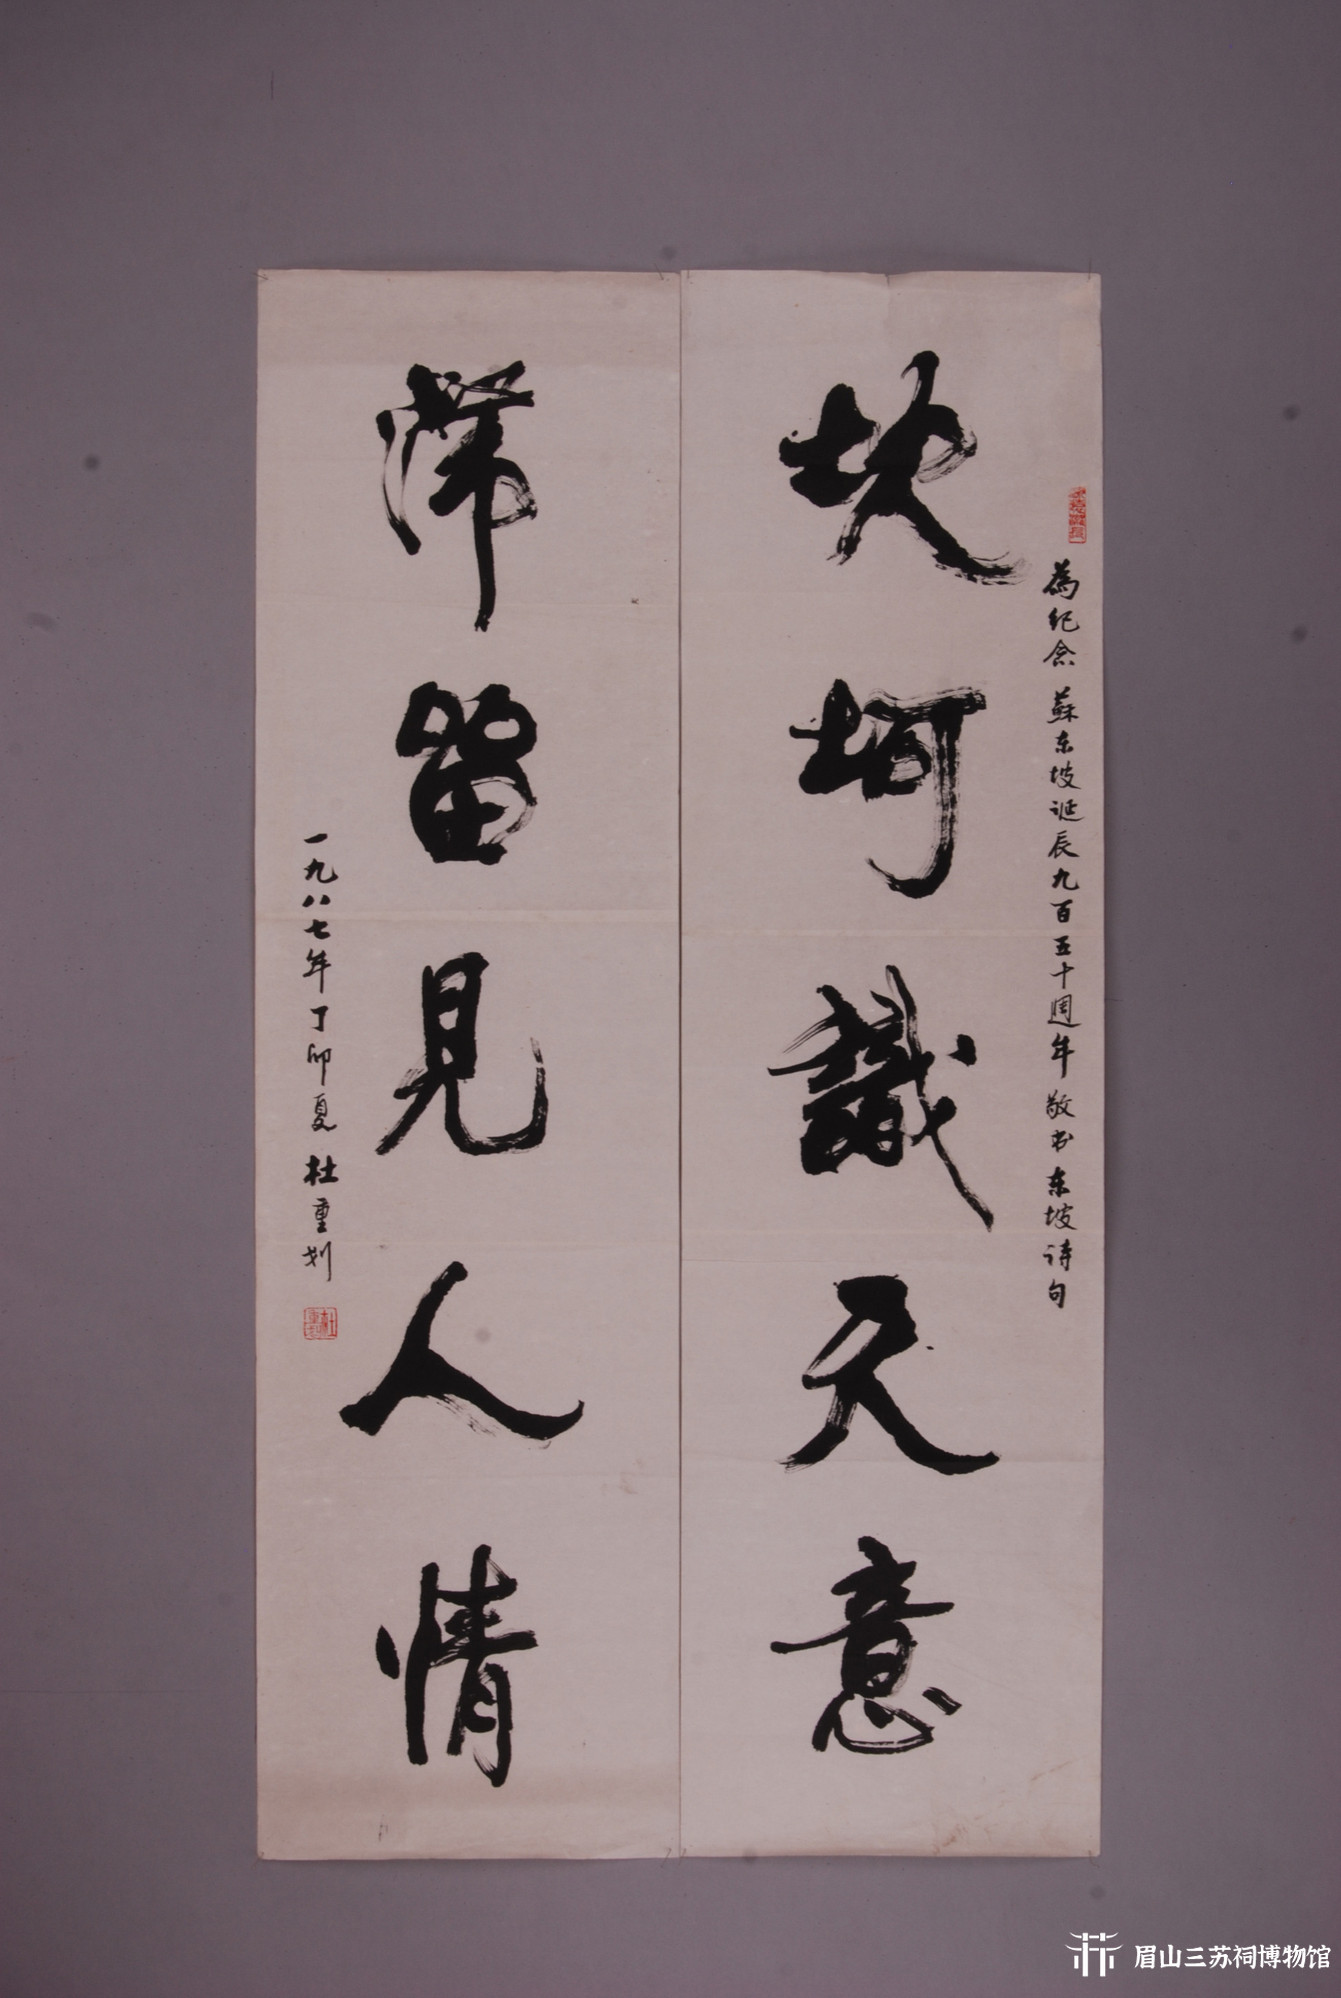 为纪念 蘇东坡诞辰九百五十週年 敬书东坡诗句
坎坷識天意
滞留見人情
一九八七年丁卯夏 杜重划
眉山三苏祠博物馆